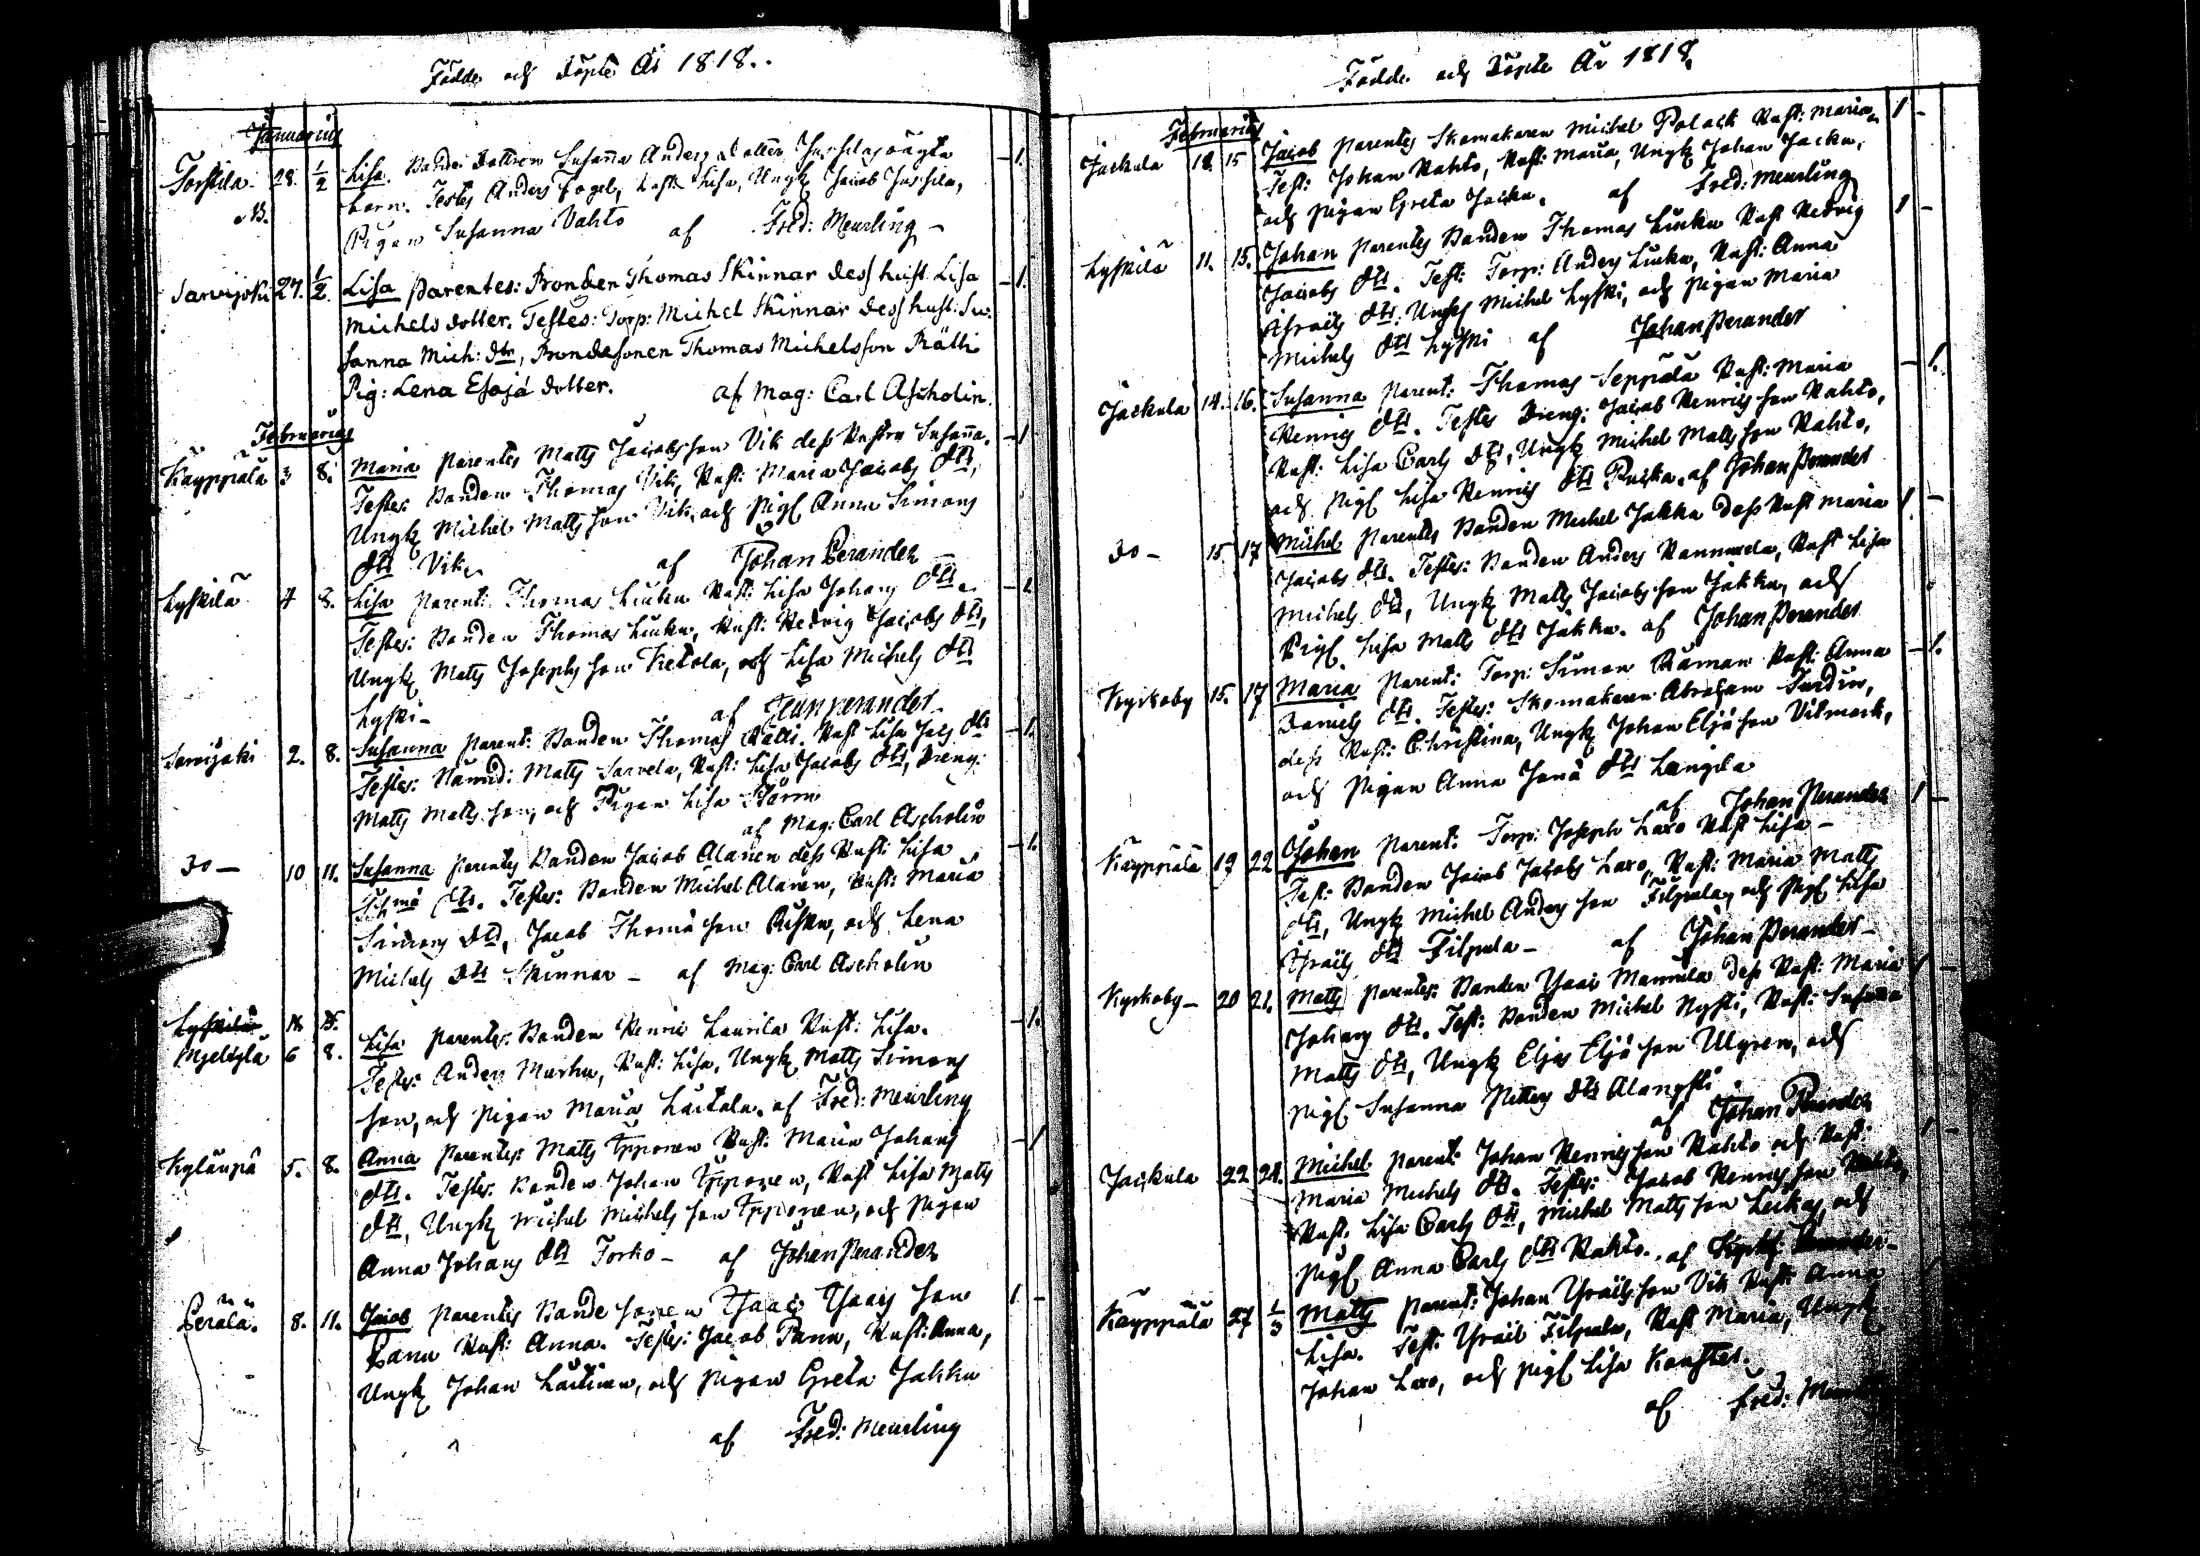 Födde och Döpte År 1818.
Januarius
Torstila 28. 1/2 Lisa. Bonde Dottren Susanna Anders Dotters Jussilas oägta - 1.
NB. barn. Testes Anders Fogel, hust: Lisa, Ungk Jacob Jussila,
Pigan Susanna Vahto af Fred: Meurling -
Sarvijoki 27. 1/2. Lisa Parentes: Bonden Thomas Skinnar dess hust: Lisa - 1.
Michels dotter. Testes: Torp: Michel Skinnar dess hust: Su-
sanna Mich: dtr, Bondesonen Thomas Michelsson Rätti
Pig: Lena Esajä dotter. af Mag: Carl Ascholin.
Februarius
Käyppälä 3 8. Maria Parentes Matts Jacobsson Vik dess Hustru Susanna. - 1
Testes: Bonden Thomas Vik, Hust: Maria Jacobs dtr,
Ungk Michel Matts son Vik, och Pig: Anna Simons
dtr Vik. af Johan Perander
Lyskilä 7 8. Lisa Parent: Thomas Liuku Hust: Lisa Johans dtr. - 1
Testes: Bonden Thomas Liuku, Hust: Hedvig Jacobs dtr,
Ungk Matts Josephs son Ketola, och Lisa Michels dtr
Lyski - af Johan Perander
Sarvijoki 2. 8. Susanna Parent: Bonden Thomas Rätti Hust Lisa dtr - 1.
Testes: Nämnd: Matts Sarvela, Hust: Lisa Jacobs dtr, Dreng:
Matts Matts son, och Pigan Lisa Störm
af Mag: Carl Ascholin
Do - 10 11. Susanna Parentes Bonden Jacob Alanen dess Hust: Lisa - 1.
dtr. Testes: Bonden Michel Alanen, Hust: Maria
Simons dtr, Jacob Thomä son Rusku, och Lena
Michels dtr Skinnar - af Mag: Carl Ascholin
Lyskilä 14. 15.
Mjelkylä 6 8. Lisa Parentes: Bonden Henric Laurila Hust: Lisa. - 1.
Testes: Anders Marku, Hust: Lisa, Ungk Matts Simons
son, och Pigan Maria Luitala. af Fred: Meurling
Kylänpä 5. 8. Anna Parentes: Matts Epponen Hust: Maria Johans - 1
dtr. Testes: Bonden Johan Epponen, Hust Lisa Matts
dtr, Ungk Michel Michels son Epponen, och Pigan
Anna Johans dtr Torko - af Johan Perander
Perälä. 8. 11. Jacob Parentes Bonde sonen Isaac Isaacs son 1 -
Panu Hust: Anna. Testes: Jacob Panu, Hust: Anna,
Ungk Johan Laitinen, och Pigan Greta Jakku
af Fred: Meurling
Födde och Döpte År 1818.
Februarius
Jackula 12 15 Jacob Parentes Skomakaren Michel Polack Hust: Maria 1 -
Test: Johan Rahto, Hust: Maria, Ungk Johan Jacku,
och Pigan Greta Jacku. af Fred: Meurling
Lyskilä 11. 15. Johan Parentes Bonden Thomas Liuku Hust Hedvig 1 -
Jacobs dtr. Test: Torp: Anders Liuku, Hust: Anna
Israels dtr: Ungk Michel Lyski, och Pigan Maria
Michels dtr Lyski af Johan Perander
Jackula 14. 16. Susanna Parent: Thomas Seppälä Hust: Maria - 1.
Henrics dtr. Testes Dreng: Jacob Henrics son Rahto,
Hust: Lisa Carls dtr, Ungk Michel Matts son Rahto,
och Pig: Lisa Henrics dtr Ruska. af Johan Perander
Do - 15 17 Michel Parentes Bonden Michel Jakku dess Hust Maria 1 -
Jacobs dtr. Testes: Bonden Anders Hannuxela, Hust Lisa
Michels dtr, Ungk Matts Jacobs son Jakku, och
Pig: Lisa Matts dtr Jakku. af Johan Perander
Kyrkoby 15. 17 Maria Parent: Torp: Simon Råman Hust: Anna - 1.
Daniels dtr. Testes: Skomakaren Abraham Turdin,
dess Hust: Christina, Ungk Johan Eljä son Vilmark,
och Pigan Anna Jonä dtr Langila
af Johan Perander
Käyppälä 19 22 Johan Parent: Torp: Joseph Laxo Hust Lisa - 1 -
Test: Bonden Jacob Jacobs Laxo, Hust: Maria Matts
dtr, Ungk Michel Anders son Filpula, och Pig: Lisa
Israels dtr Filpula - af Johan Perander -
Kyrkoby - 20 21. Matts Parentes: Bonden Isaac Mannila dess Hust: Maria 1 -
Johans dtr. Test: Bonden Michel Nysti, Hust: Susanna
Matts dtr, Ungk Elias Eljä son Ulgren, och
Pig: Susanna Petters dtr Alanysti.
af Johan Perander
Jackula 22 24. Michel Parent: Johan Henrics son Rahto och Hust: 1 -
Maria Michels dtr. Testes: Jacob Henrics son Rahto,
Hust. Lisa Carls dtr, Michel Matts son Leikas, och
Pig: Anna Carls dtr Rahto. af
Käyppälä 27 1/3 Matts Parent: Johan Israels son Vik Hust: Anna
Lisa. Test: Israel Filpula, Hust Maria, Ungk
Johan Laxo, och Pig: Lisa Kanster.
af Fred: